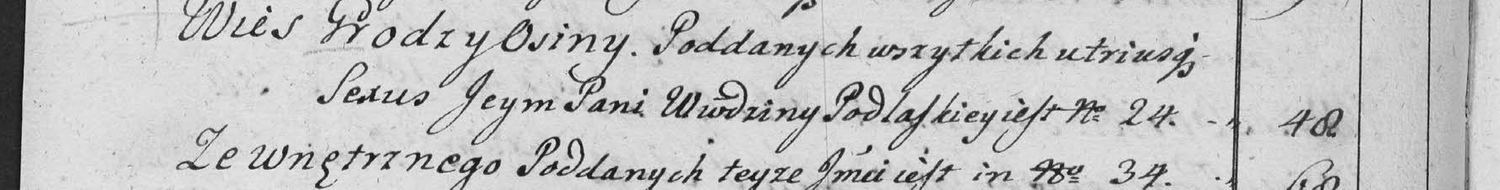 Wieś Grodzy Osiny. Poddanych wszytkich utriusq
Sexus Jeym Pani Wwdziny Podlaskiey iest No 24. - ,, 48
Zewnętrznego Poddanych teyże Jmci iest in No 34. - ,, 68